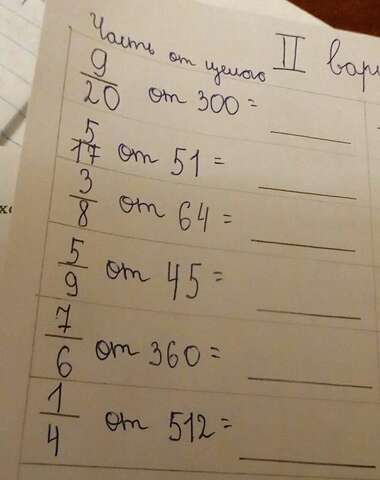 Часть от целого II вари
9/20 от 300 =
5/17 от 51 =
3/8 от 64 =
5/9 от 45 =
7/6 от 360 =
1/4 от 512 =